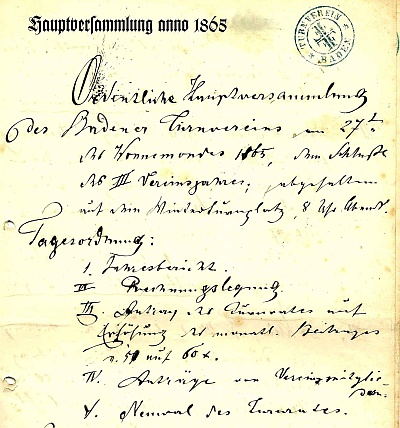 Hauptversammlung anno 1865
TURNVEREIN BADEN
Ordentliche Hauptversammlung
des Badener Turnvereins am 27t
des Wonnemondes 1865, dem Schluße
des III Vereinsjahres, abgehalten
auf dem Winterturnplatz, 8 Uhr Abend.
Tagesordnung:
1. Jahresbericht.
II Rechnungslegung.
III. Antrag des Turnrates auf
Erhöhung des monatl. Beitrages
v. 50 auf 60 x.
IV. Anträge von Vereinsmitglie-
dern.
V. Neuwal des Turnrates.